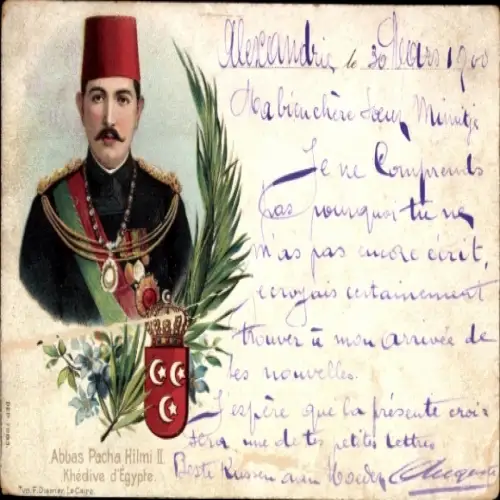 Alexandrie, le 30 Mars 1900
Ma bien chère Soeur,
Je ne Comprends
pas pourquoi tu ne
m'as pas encore écrit,
je croyais certainement
trouver à mon arrivée de
tes nouvelles.
J'espère que la présente croi-
sera une de tes petites lettres.
Beste Kussen aan Moeder
Abbas Pacha Hilmi II
Khédive d'Egypte.
F. Diemer, Le Caire.